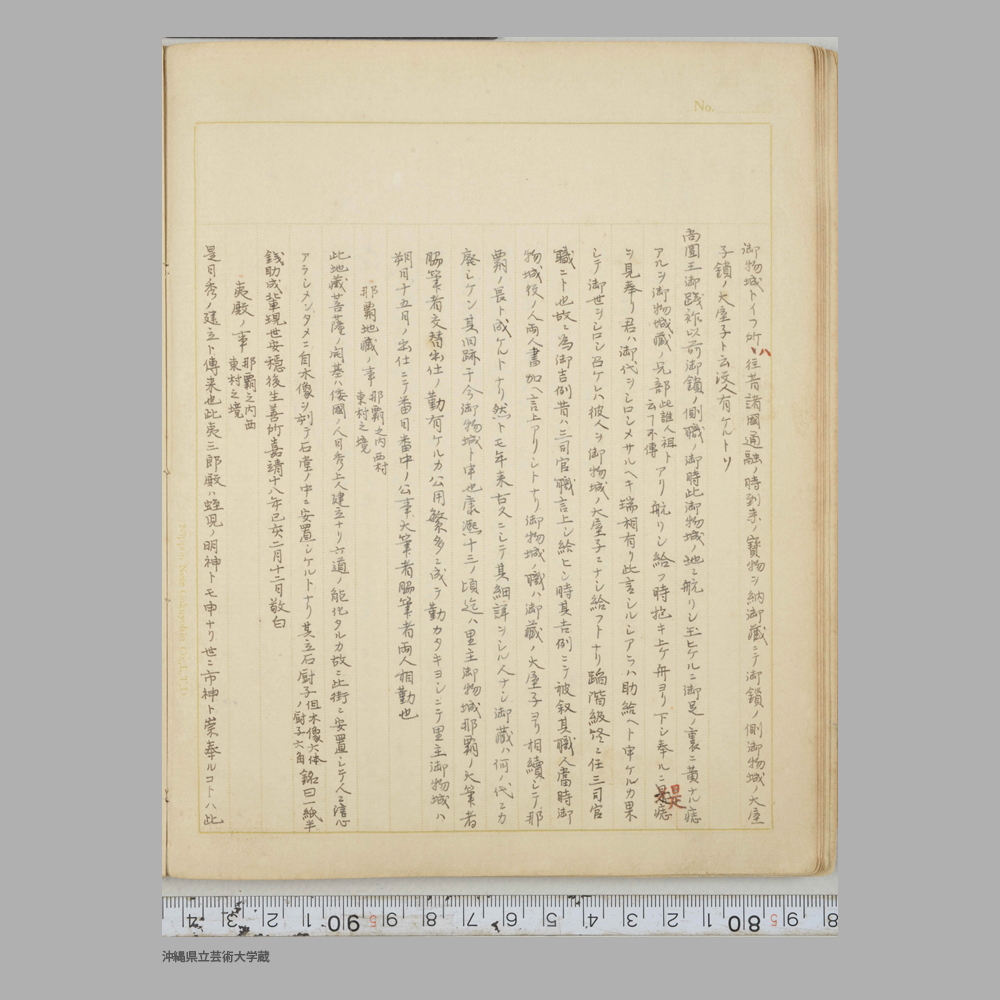 No.
御物城トイフ所ハ往昔諸國通融ノ時到来ノ寶物ヲ納御藏ニテ御鎖ノ側御物城ノ大屋
子鎖ノ大屋子ト云役人有ケルトソ
尚圓王御踐祚以前御鎖ノ側職ノ御時此御物城ノ地ニ航リシ玉ヒケルニ御足ノ裏ニ黄ナル痣
アルヲ御物城職ノ兄部此誰人祖ト云フ不傳アリ航リシ給フ時抱キ上ケ舟ヨリ下シ奉ルニ是痣
ヲ見奉リ君ハ御代ヲシロシメサルヘキ瑞相有リ此言シルシアラハ助給ヘト申ケルカ果
シテ御世ヲシロシ召ケレハ彼人ヲ御物城ノ大屋子ニナシ給フトナリ踰階級終ニ任三司官
職ニト也故ニ為御吉例昔ハ三司官職言上シ給ヒシ時其吉例ニテ被叙其職人當時御
物城役ノ人両人書加ヘ言上アリシトナリ御物城ノ職ハ御藏ノ大屋子ヨリ相續シテ那
覇ノ長ト成ケルトナリ然トモ年来古久ニシテ其細詳ヲシル人ナシ御藏ハ何ノ代ニカ
廃シケン其旧跡于今御物城ト申也康熙十三ノ頃迄ハ里主御物城那覇ノ大筆者
脇筆者交替出仕ノ勤有ケルカ公用繁多ニ成テ勤カタキヨシニテ里主御物城ハ
朔月十五月ノ出仕ニテ番日番中ノ公事大筆者脇筆者両人相勤也
那覇地藏ノ事 那覇之内西村東村之境
此地藏菩薩ノ開基ハ倭國ノ人日秀上人建立ナリ六道ノ能化タルカ故ニ此街ニ安置シテ人ニ信心
アラシメンタメニ自木像ヲ刻テ石堂ノ中ニ安置シケルトナリ其立石厨子但木像六体ノ厨子六角銘曰一紙半
銭助成輩現世安穏後生善所嘉靖十八年己亥二月十二日敬白
夷殿ノ事 那覇之内西東村之境
是日秀ノ建立ト傳来也此夷三郎殿ハ蛭児ノ明神トモ申ナリ世ニ市神ト崇奉ルコトハ此
是
沖縄県立芸術大学蔵